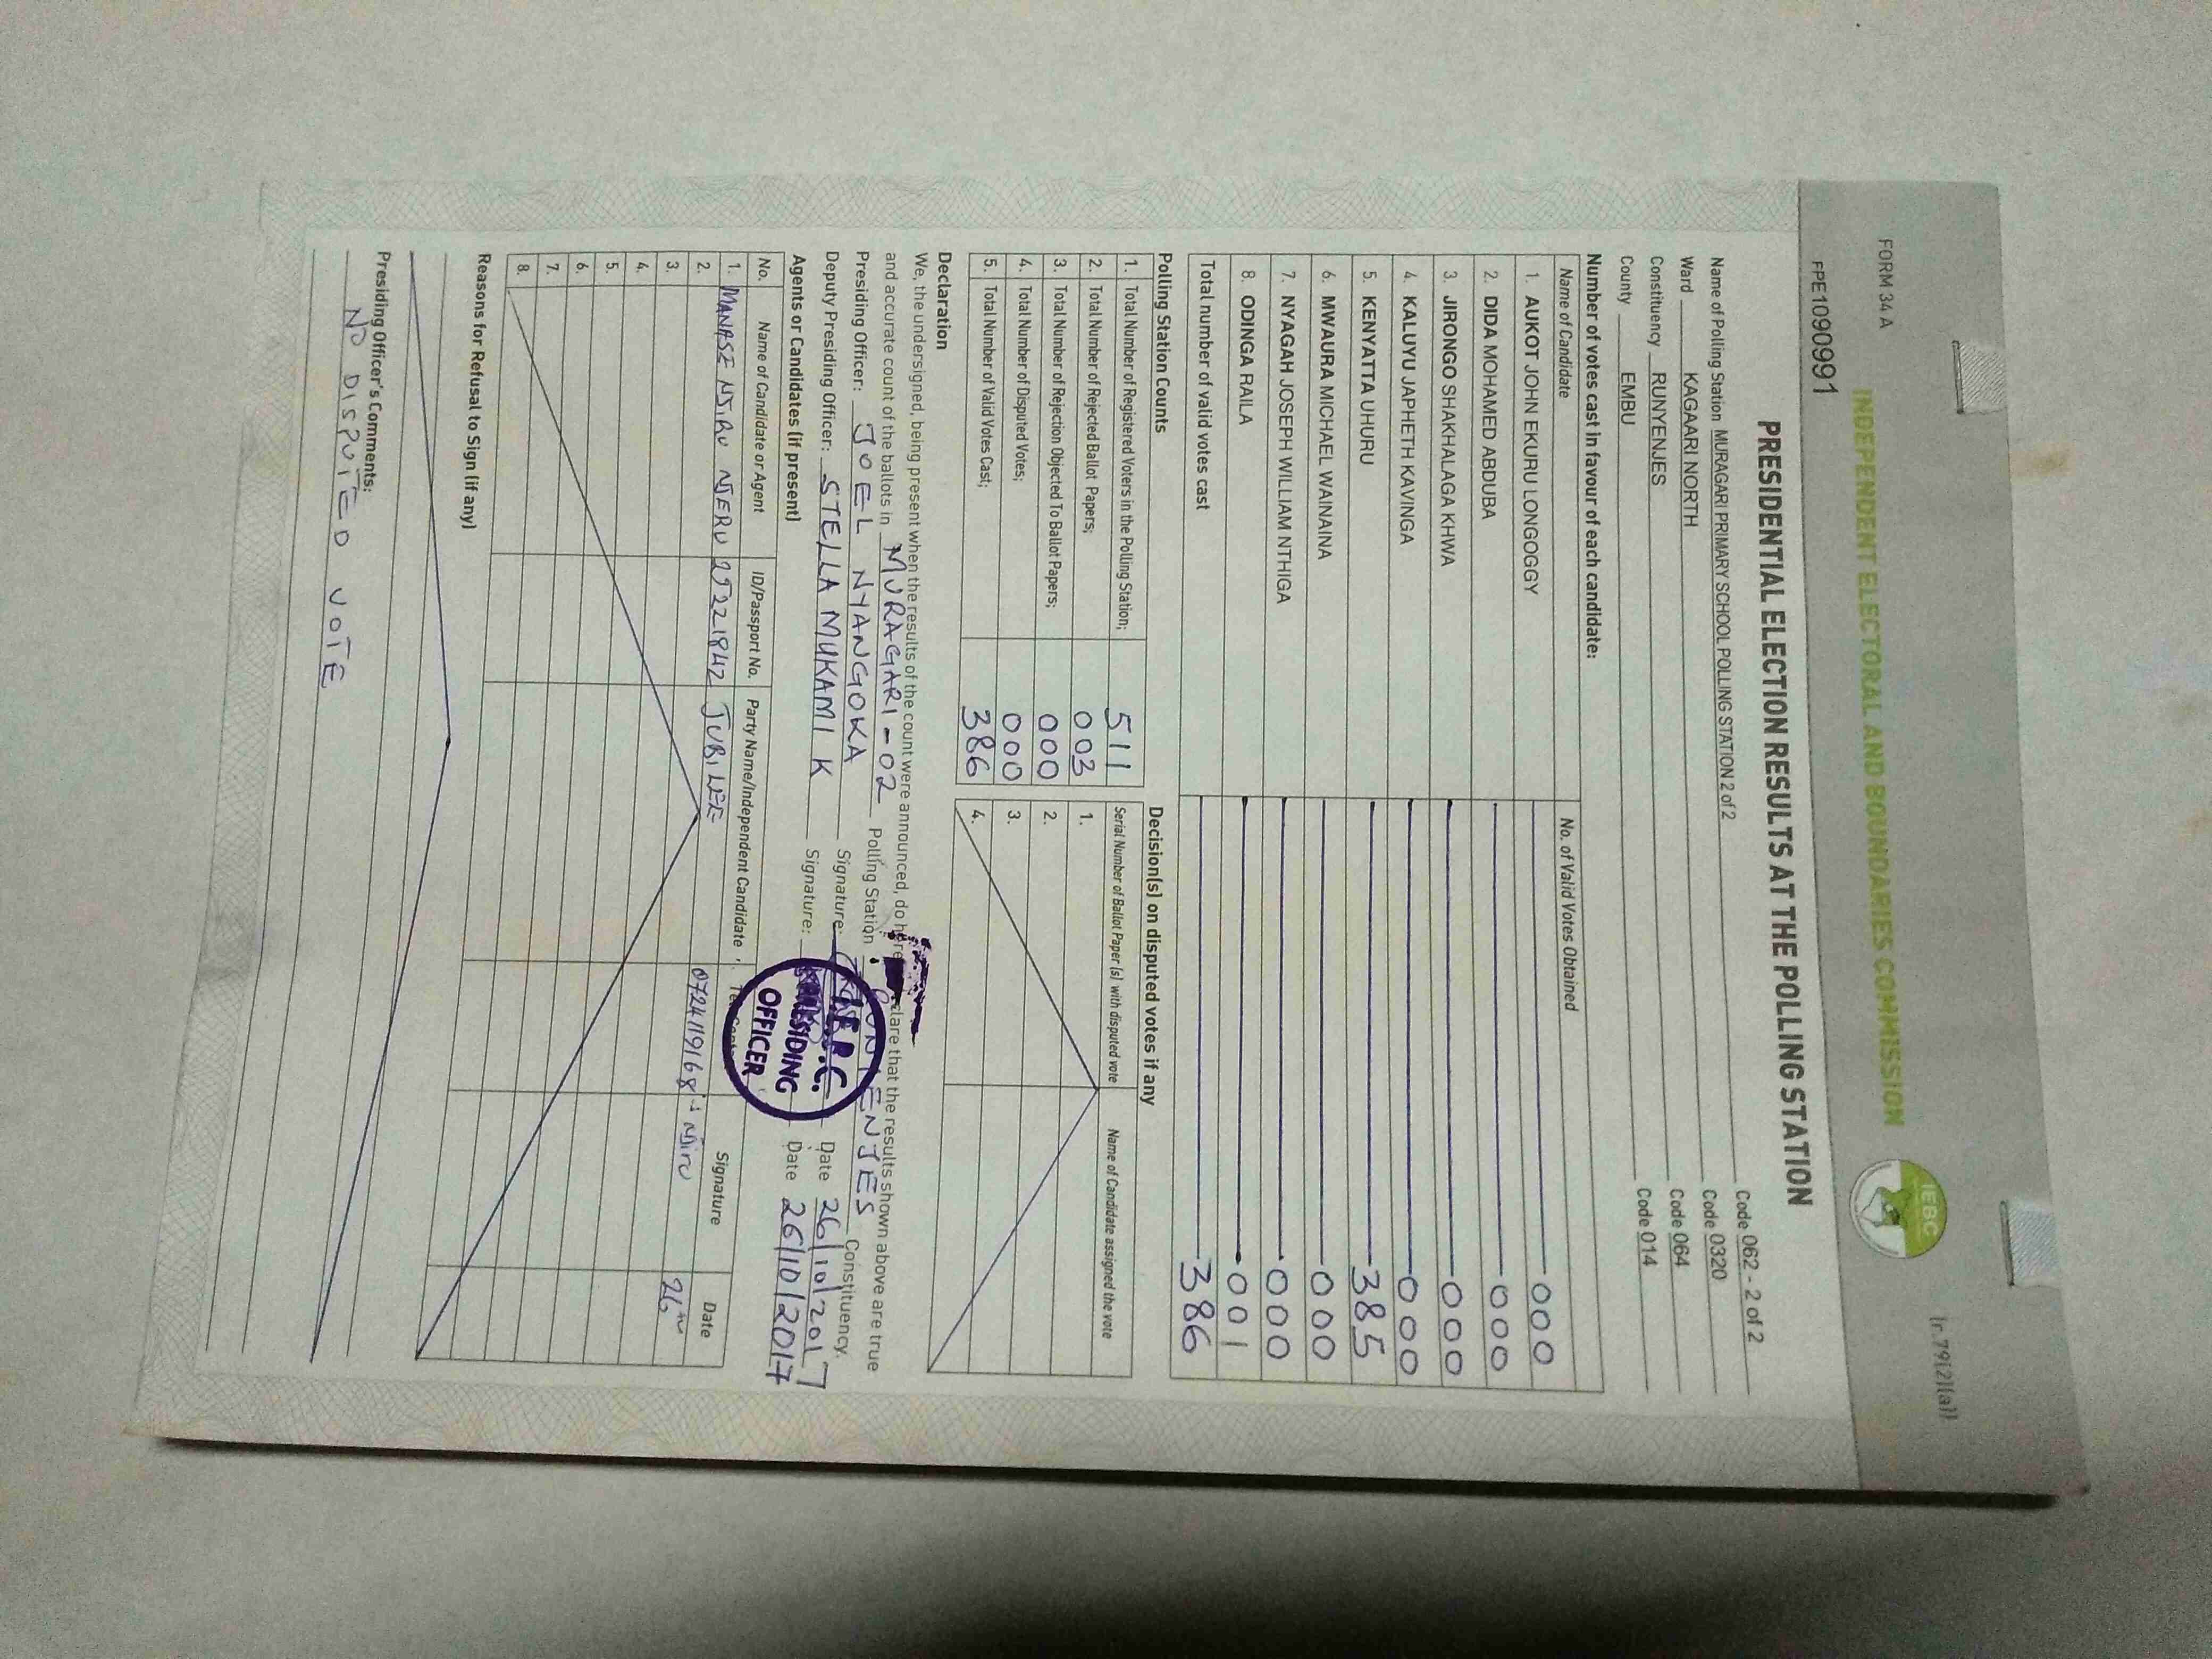 FORM 34 A
(r.79(2)(a))
INDEPENDENT ELECTORAL AND BOUNDARIES COMMISSION
IEBC
FPE1090991
PRESIDENTIAL ELECTION RESULTS AT THE POLLING STATION
Name of Polling Station MURAGARI PRIMARY SCHOOL POLLING STATION 2 of 2 Code 062 - 2 of 2
Ward KAGAARI NORTH Code 0320
Constituency RUNYENJES Code 064
County EMBU Code 014
Number of votes cast in favour of each candidate:
Name of Candidate No. of Valid Votes Obtained
1. AUKOT JOHN EKURU LONGOGGY 000
2. DIDA MOHAMED ABDUBA 000
3. JIRONGO SHAKHALAGA KHWA 000
4. KALUYU JAPHETH KAVINGA 000
5. KENYATTA UHURU 385
6. MWAURA MICHAEL WAINAINA 000
7. NYAGAH JOSEPH WILLIAM NTHIGA 000
8. ODINGA RAILA 001
Total number of valid votes cast 386
Polling Station Counts
1. Total Number of Registered Voters in the Polling Station; 511
2. Total Number of Rejected Ballot Papers; 003
3. Total Number of Rejection Objected To Ballot Papers; 000
4. Total Number of Disputed Votes; 000
5. Total Number of Valid Votes Cast; 386
Decision(s) on disputed votes if any
Serial Number of Ballot Paper (s) with disputed vote Name of Candidate assigned the vote
1.
2.
3.
4.
Declaration
We, the undersigned, being present when the results of the count were announced, do declare that the results shown above are true
and accurate count of the ballots in MURAGARI - 02 Polling Station, RUNYENJES Constituency.
Presiding Officer: JOEL NYANGOKA Signature: Date 26/10/2017
Deputy Presiding Officer: STELLA MUKAMI K Signature: Date 26/10/2017
I.E.B.C.
PRESIDING
OFFICER
Agents or Candidates (if present)
No. Name of Candidate or Agent ID/Passport No. Party Name/Independent Candidate Signature Date
1. MANASE NJIRU NJERU 25221842 JUBILEE 0724119168 Njiru 26th
2.
3.
4.
5.
6.
7.
8.
Reasons for Refusal to Sign (if any)
Presiding Officer's Comments:
NO DISPUTED VOTE